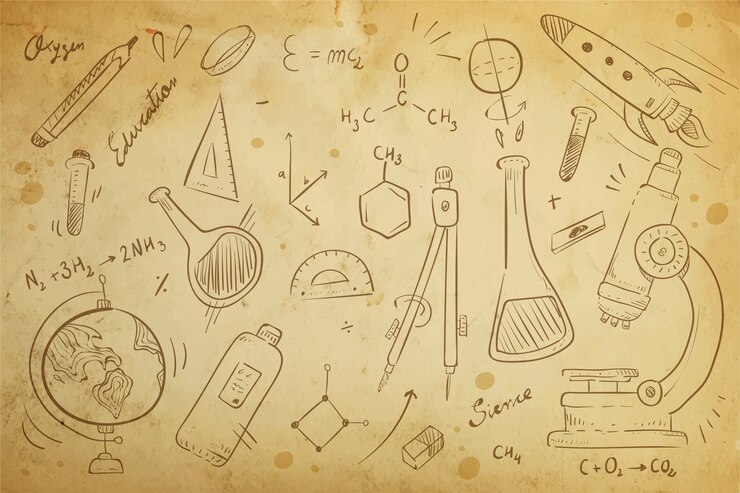 Oxygen
Education
ℰ = mc₂
O
||
C
H₃C CH₃
CH₃
a
b
c
N₂ + 3H₂ → 2NH₃
%
÷
+
-
Sience
CH₄
C + O₂ → CO₂